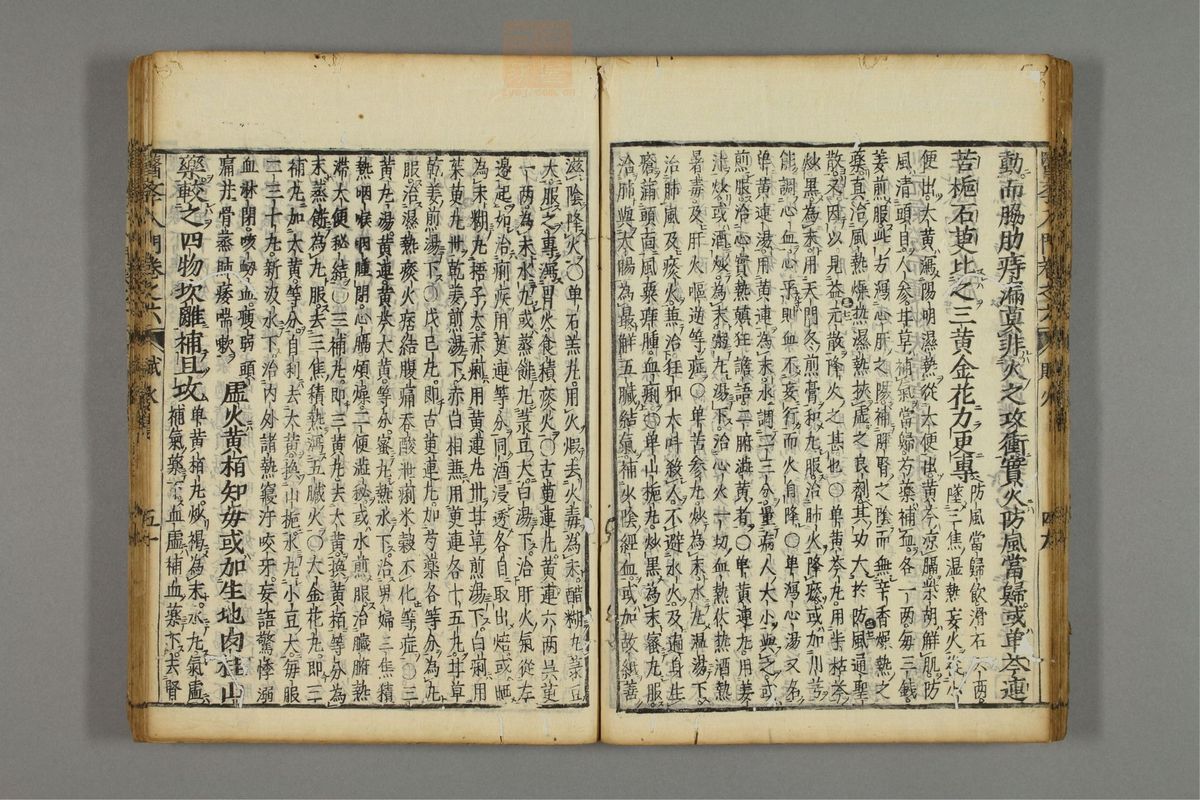 動而脇肋痔漏莫非火之攻衝實火防風當歸或單芩連
苦梔石茰比之三黃金花力更專防風當歸飲滑石一兩
墜三焦温熱妄火從小
便出大黃瀉陽明濕熱從大便出黃芩凉膈柴胡解肌防
風清頭目人參甘草補氣當歸芍藥補血各一兩每三錢
姜煎服此方瀉心肝之陽補脾腎之陰而無辛香燥熱之
藥直治風熱燥熱濕熱挾虛之良劑其功大於防風通聖
散又因以見益元散降火之甚也○單黃芩丸用半枯芩
炒黑爲末用天門冬煎膏和丸服治肺火降痰或加川芎
能調心血心平則血不妄行而火自降○單瀉心湯又名
單黃連湯用黃連爲末水調二三分量病人大小與之或
煎服治心實熱顛狂譫語二腑澁黃者○單黃連丸用姜
汁炒或酒炒爲末粥丸湯下治心火十切血熱伏熱酒熱
暑毒及肝火嘔逆等症○單苦參丸炒爲末水丸温湯下
治肺風及痰火無治狂邪大叫殺人不避水火及遍身生
瘡滿頭面風粟痒腫血痢○單山梔丸炒黑爲末蜜丸服
治肺與大腸爲最解五臟結氣補火陰經血或加故紙善
滋陰降火○單石羔丸用火煆去火毒爲末醋糊丸菉豆
大服之專瀉胃火食積痰火○古茰連丸黃連六兩吳茰
一兩爲末水丸或蒸餅丸菉豆大白湯下治肝火氣從左
邊起如治痢疾用茰連等分同酒浸透各自取出焙或晒
爲末糊丸梧子大赤痢用黃連丸卅甘草煎湯下白痢用
茱茰丸卅乾姜煎湯下赤白相兼用茰連各十五丸甘草
乾姜煎湯下○戊己丸即古茰連丸加芍藥各等分爲丸
服治濕熱痰火痞結腹痛吞酸泄痢米穀不化等症○三
黃丸湯黃連黃芩大黃等分蜜丸熱水下治男婦三焦積
熱咽喉咽腫閉心膈煩燥二便澁秘或水煎服治臟腑熱
滯大便秘結○三補丸即三黃丸去大黃換黃栢等分爲
末蒸餅爲丸服去三焦積熱瀉五臟火○大金花丸即三
補丸加大黃等分自利去大黃換山梔水丸小豆大每服
二三十丸新汲水下治內外諸熱寢汗咬牙妄語驚悸溺
血淋閉咳衂血瘦弱頭
痛并骨蒸肺痿喘嗽虛火黃栢知母或加生地肉桂山
藥較之四物坎離補且攻單黃栢丸炒褐爲末水丸氣虛
補氣藥下血虛補血藥下去腎